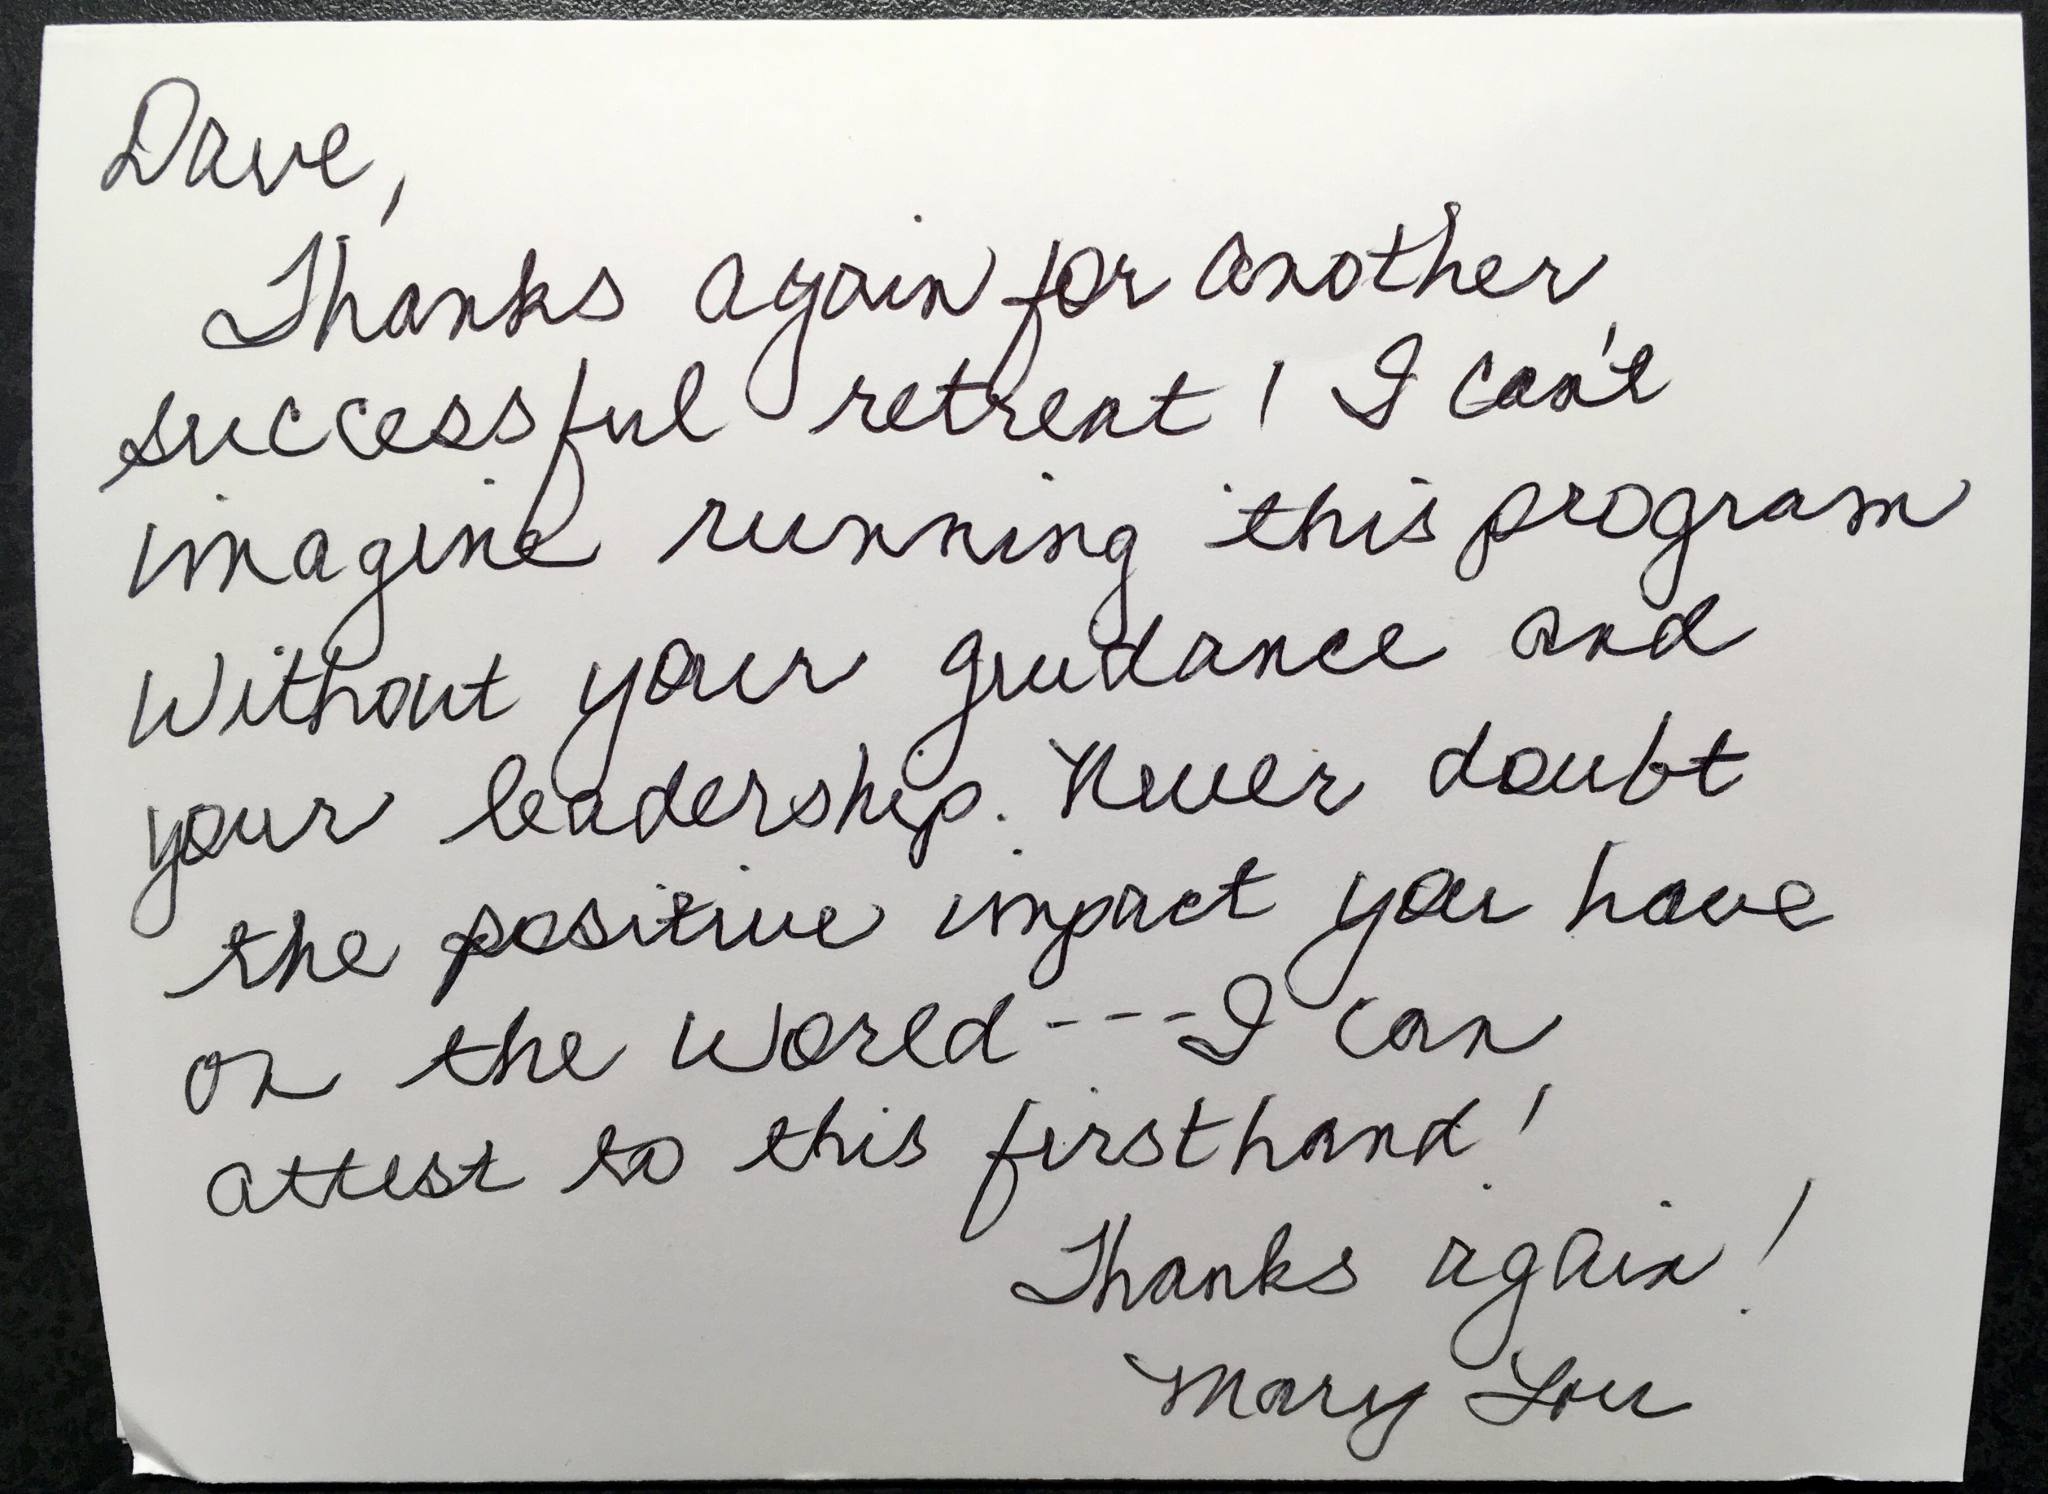 Dave,
Thanks again for another
successful retreat! I can't
imagine running this program
without your guidance and
your leadership. Never doubt
the positive impact you have
on the world --- I can
attest to this firsthand!
Thanks again!
Mary Lou